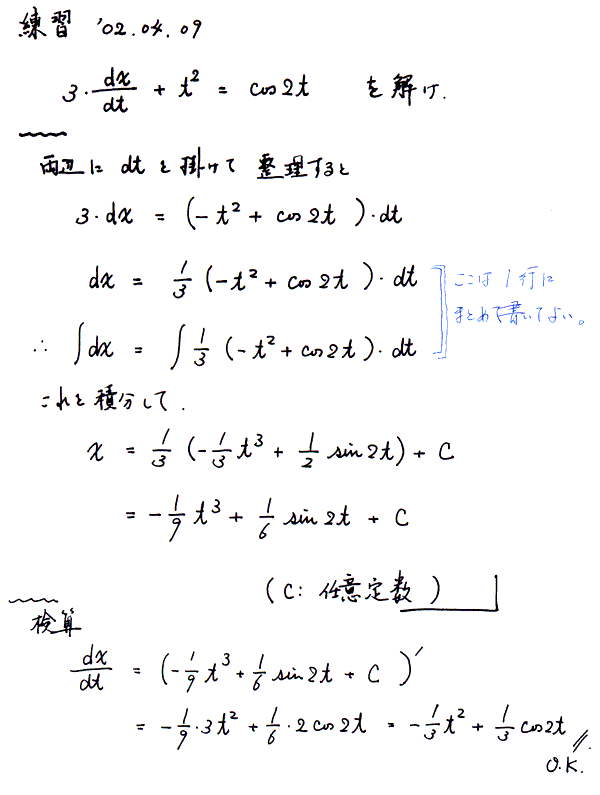 練習 '02.04.09
3・dx/dt + t² = cos2t を解け.
両辺に dt を掛けて 整理すると
3・dx = (-t² + cos2t )・dt
dx = 1/3 (-t² + cos2t )・dt
ここは 1行に
まとめて書いてよい。
∴ ∫dx = ∫ 1/3 (-t² + cos2t)・dt
これを積分して.
x = 1/3 (-1/3 t³ + 1/2 sin2t) + C
= -1/9 t³ + 1/6 sin2t + C
(C: 任意定数 )
検算
dx/dt = (-1/9 t³ + 1/6 sin2t + C )′
= -1/9・3t² + 1/6・2cos2t = -1/3 t² + 1/3 cos2t
O.K.